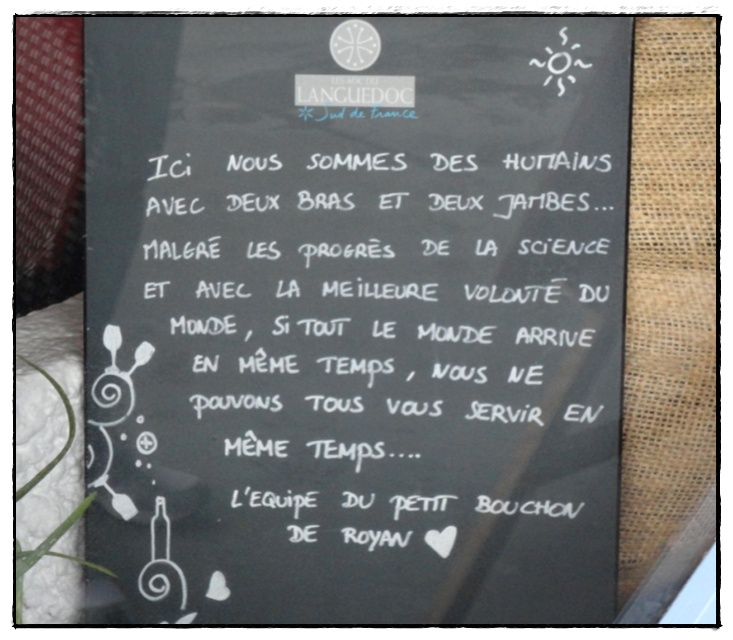 LES AOC DU
LANGUEDOC
Sud de France
Ici NOUS SOMMES DES HUMAINS
AVEC DEUX BRAS ET DEUX JAMBES...
MALGRÉ LES PROGRÈS DE LA SCIENCE
ET AVEC LA MEILLEURE VOLONTÉ DU
MONDE, SI TOUT LE MONDE ARRIVE
EN MÊME TEMPS, NOUS NE
POUVONS TOUS VOUS SERVIR EN
MÊME TEMPS....
L'EQUIPE DU PETIT BOUCHON
DE ROYAN